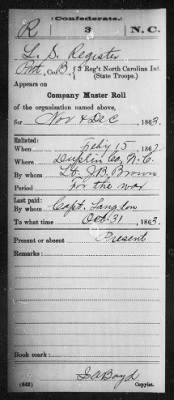 Confederate.
R 3 N.C.
L. S. Register
Pvt, Co. B, 3 Reg't North Carolina Inf.
(State Troops.)
Appears on
Company Muster Roll
of the organization named above,
for Nov & Dec, 1863.
Enlisted:
When Feb'y 15, 1862
Where Duplin Co, N.C.
By whom Lt. J.B. Brown
Period For the war
Last paid:
By whom Capt. Langdon
To what time Oct. 31, 1863.
Present or absent Present
Remarks:
Book mark:
(642) S A Boyd
Copyist.